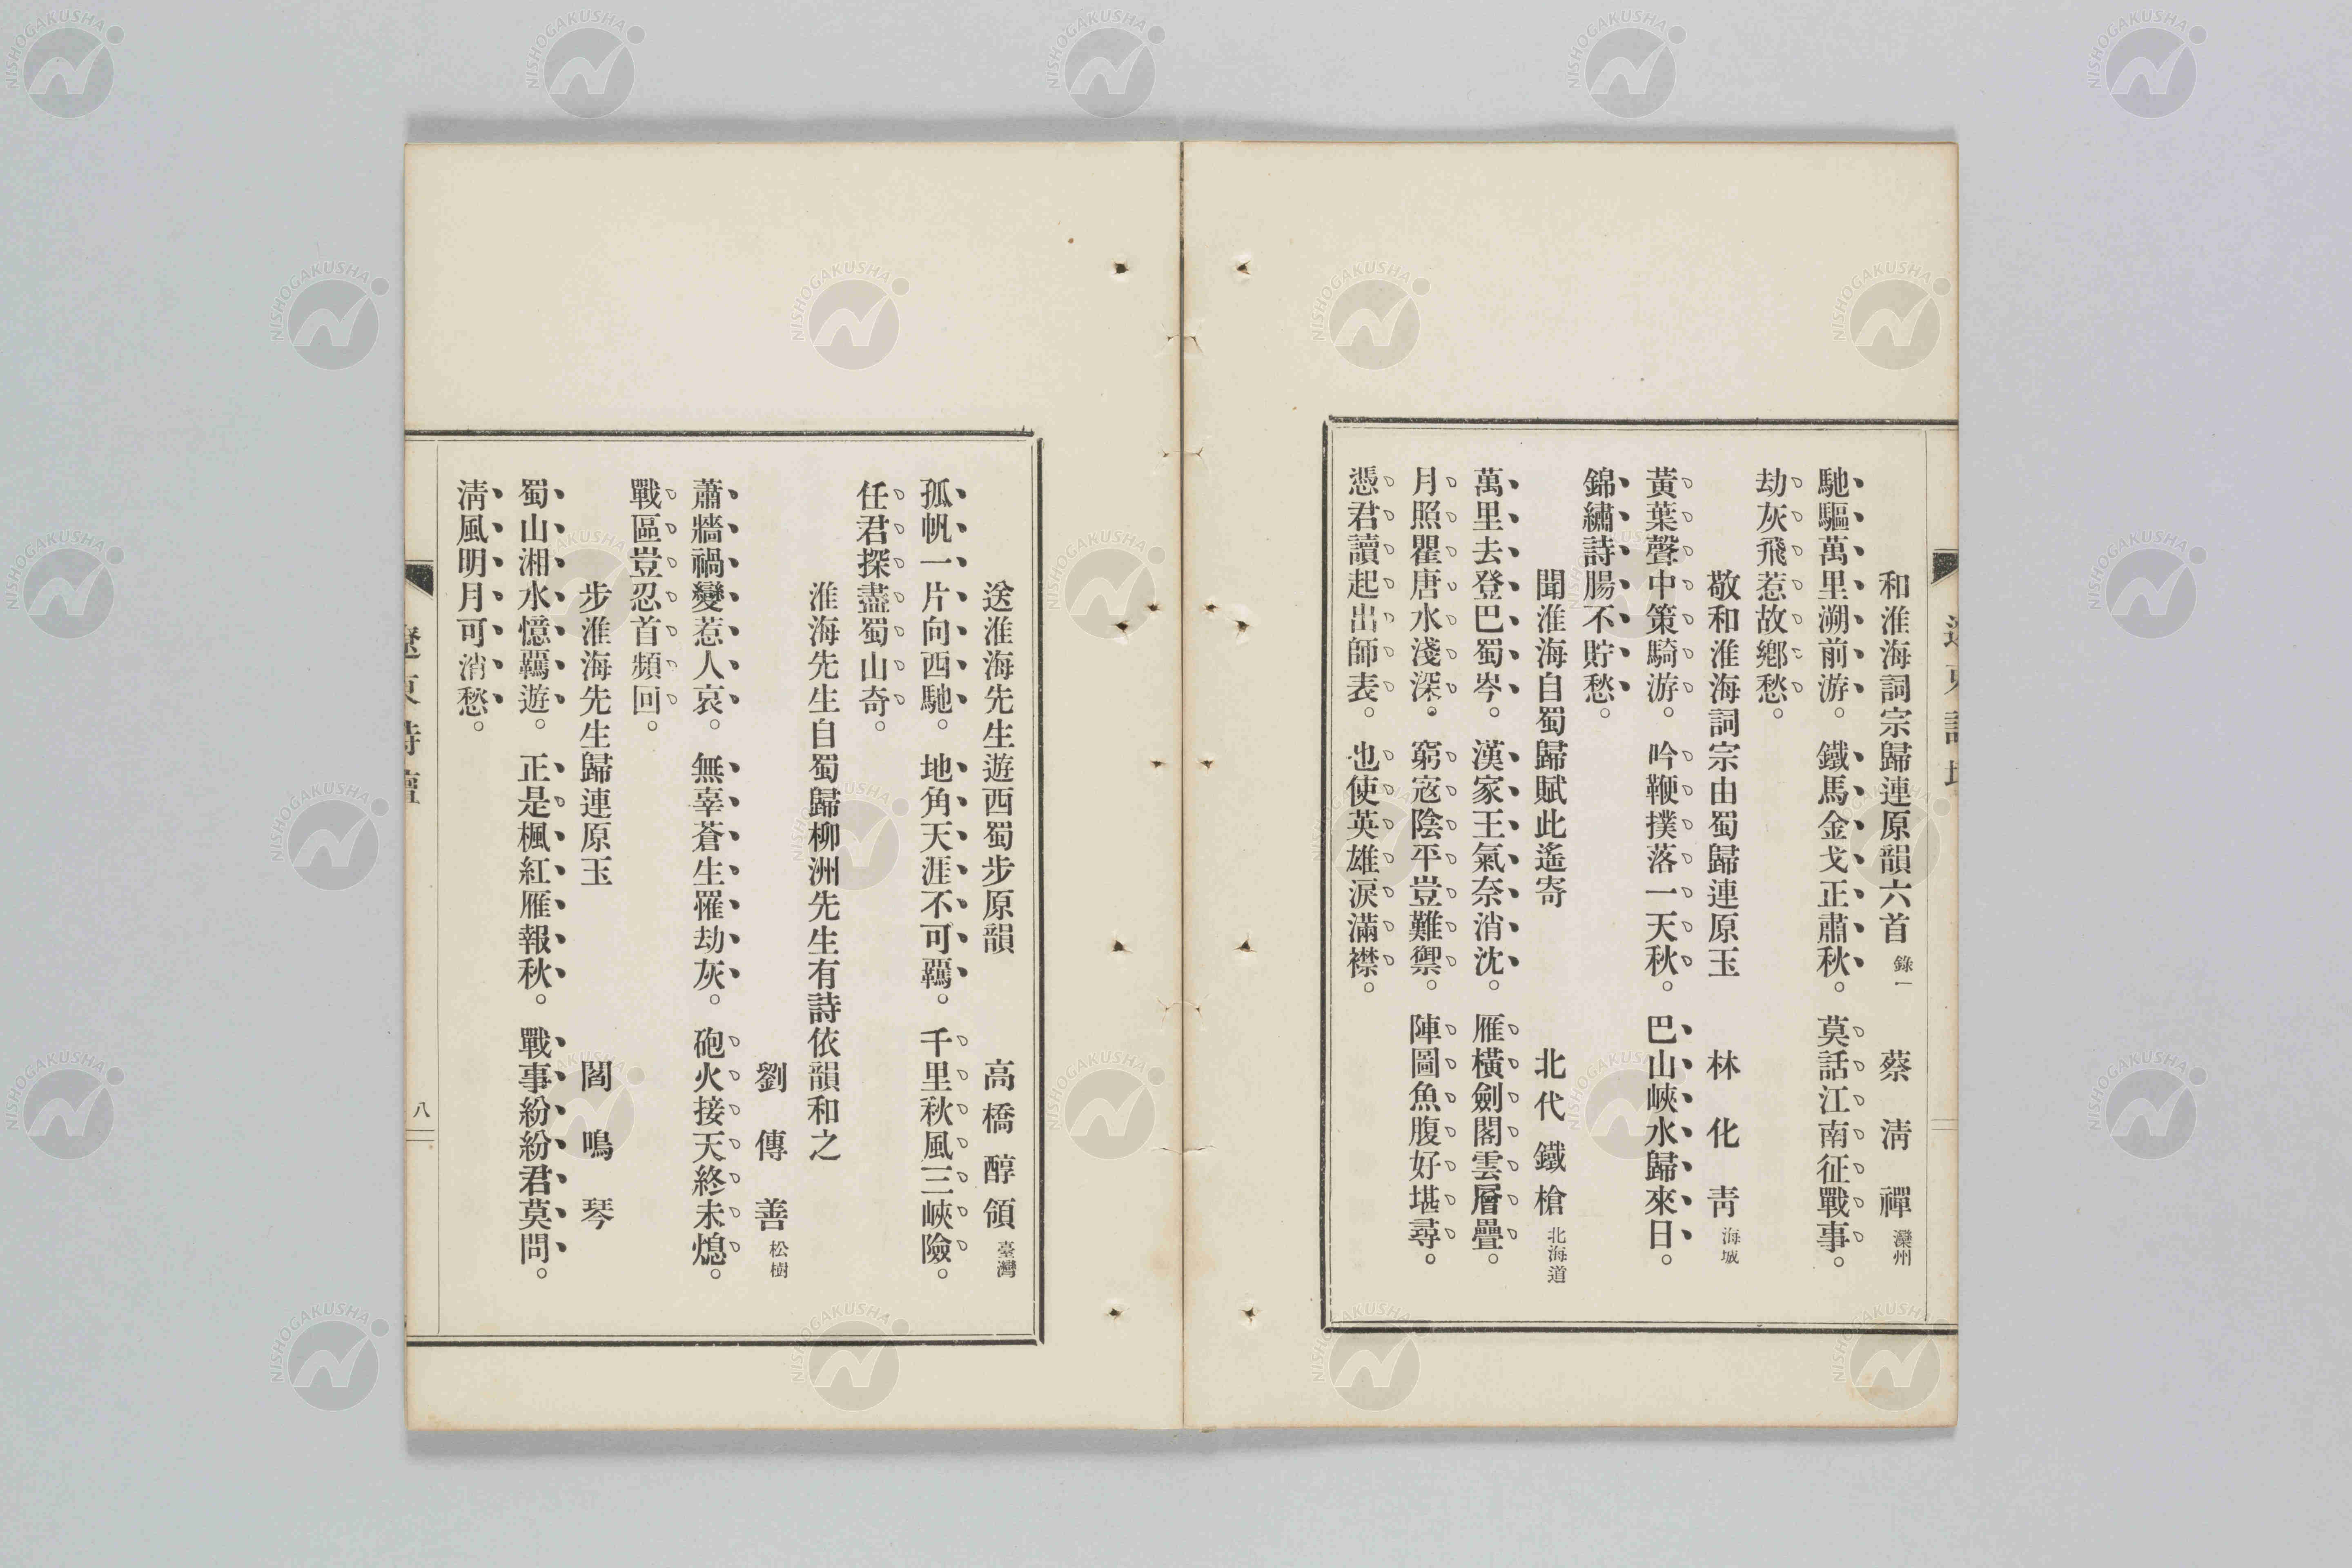 和淮海詞宗歸連原韻六首 錄一 蔡淸禪 灤州
馳驅萬里溯前游。鐵馬金戈正肅秋。莫話江南征戰事。
劫灰飛惹故鄕愁。
敬和淮海詞宗由蜀歸連原玉 林化靑 海城
黃葉聲中策騎游。吟鞭撲落一天秋。巴山峽水歸來日。
錦繡詩腸不貯愁。
聞淮海自蜀歸賦此遙寄 北代鐵槍 北海道
萬里去登巴蜀岑。漢家王氣奈消沈。雁橫劍閣雲層疊。
月照瞿唐水淺深。窮寇陰平豈難禦。陣圖魚腹好堪尋。
憑君讀起出師表。也使英雄淚滿襟。
送淮海先生遊西蜀步原韻 高橋醇領 臺灣
孤帆一片向西馳。地角天涯不可羈。千里秋風三峽險。
任君探盡蜀山奇。
淮海先生自蜀歸柳洲先生有詩依韻和之
劉傳善 松樹
蕭牆禍變惹人哀。無辜蒼生罹劫灰。砲火接天終未熄。
戰區豈忍首頻回。
步淮海先生歸連原玉 閻鳴琴
蜀山湘水憶羈遊。正是楓紅雁報秋。戰事紛紛君莫問。
淸風明月可消愁。
遼東詩壇
八
NISHOGAKUSHA